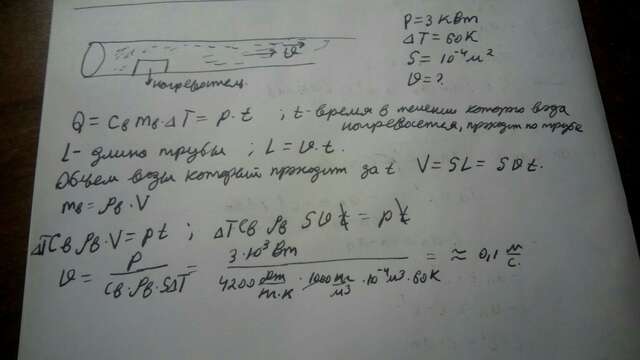 P = 3 кВт
ΔT = 60 К
S = 10⁻⁴ м²
ϑ = ?
ϑ
нагреватель
Q = Cв mв · ΔT = P · t ; t - время в течении которого вода
нагревается, проходит по трубе
L - длина трубы ; L = ϑ · t.
Объем воды который проходит за t V = SL = Sϑt.
mв = ρв · V
ΔT Cв ρв · V = pt ; ΔT Cв ρв S ϑ t = p t
ϑ = P / (Cв · ρв · SΔT) = 3 · 10³ Вт / (4200 Дж/кг·К · 1000 кг/м³ · 10⁻⁴ м³ · 60К) = ≈ 0,1 м/с.